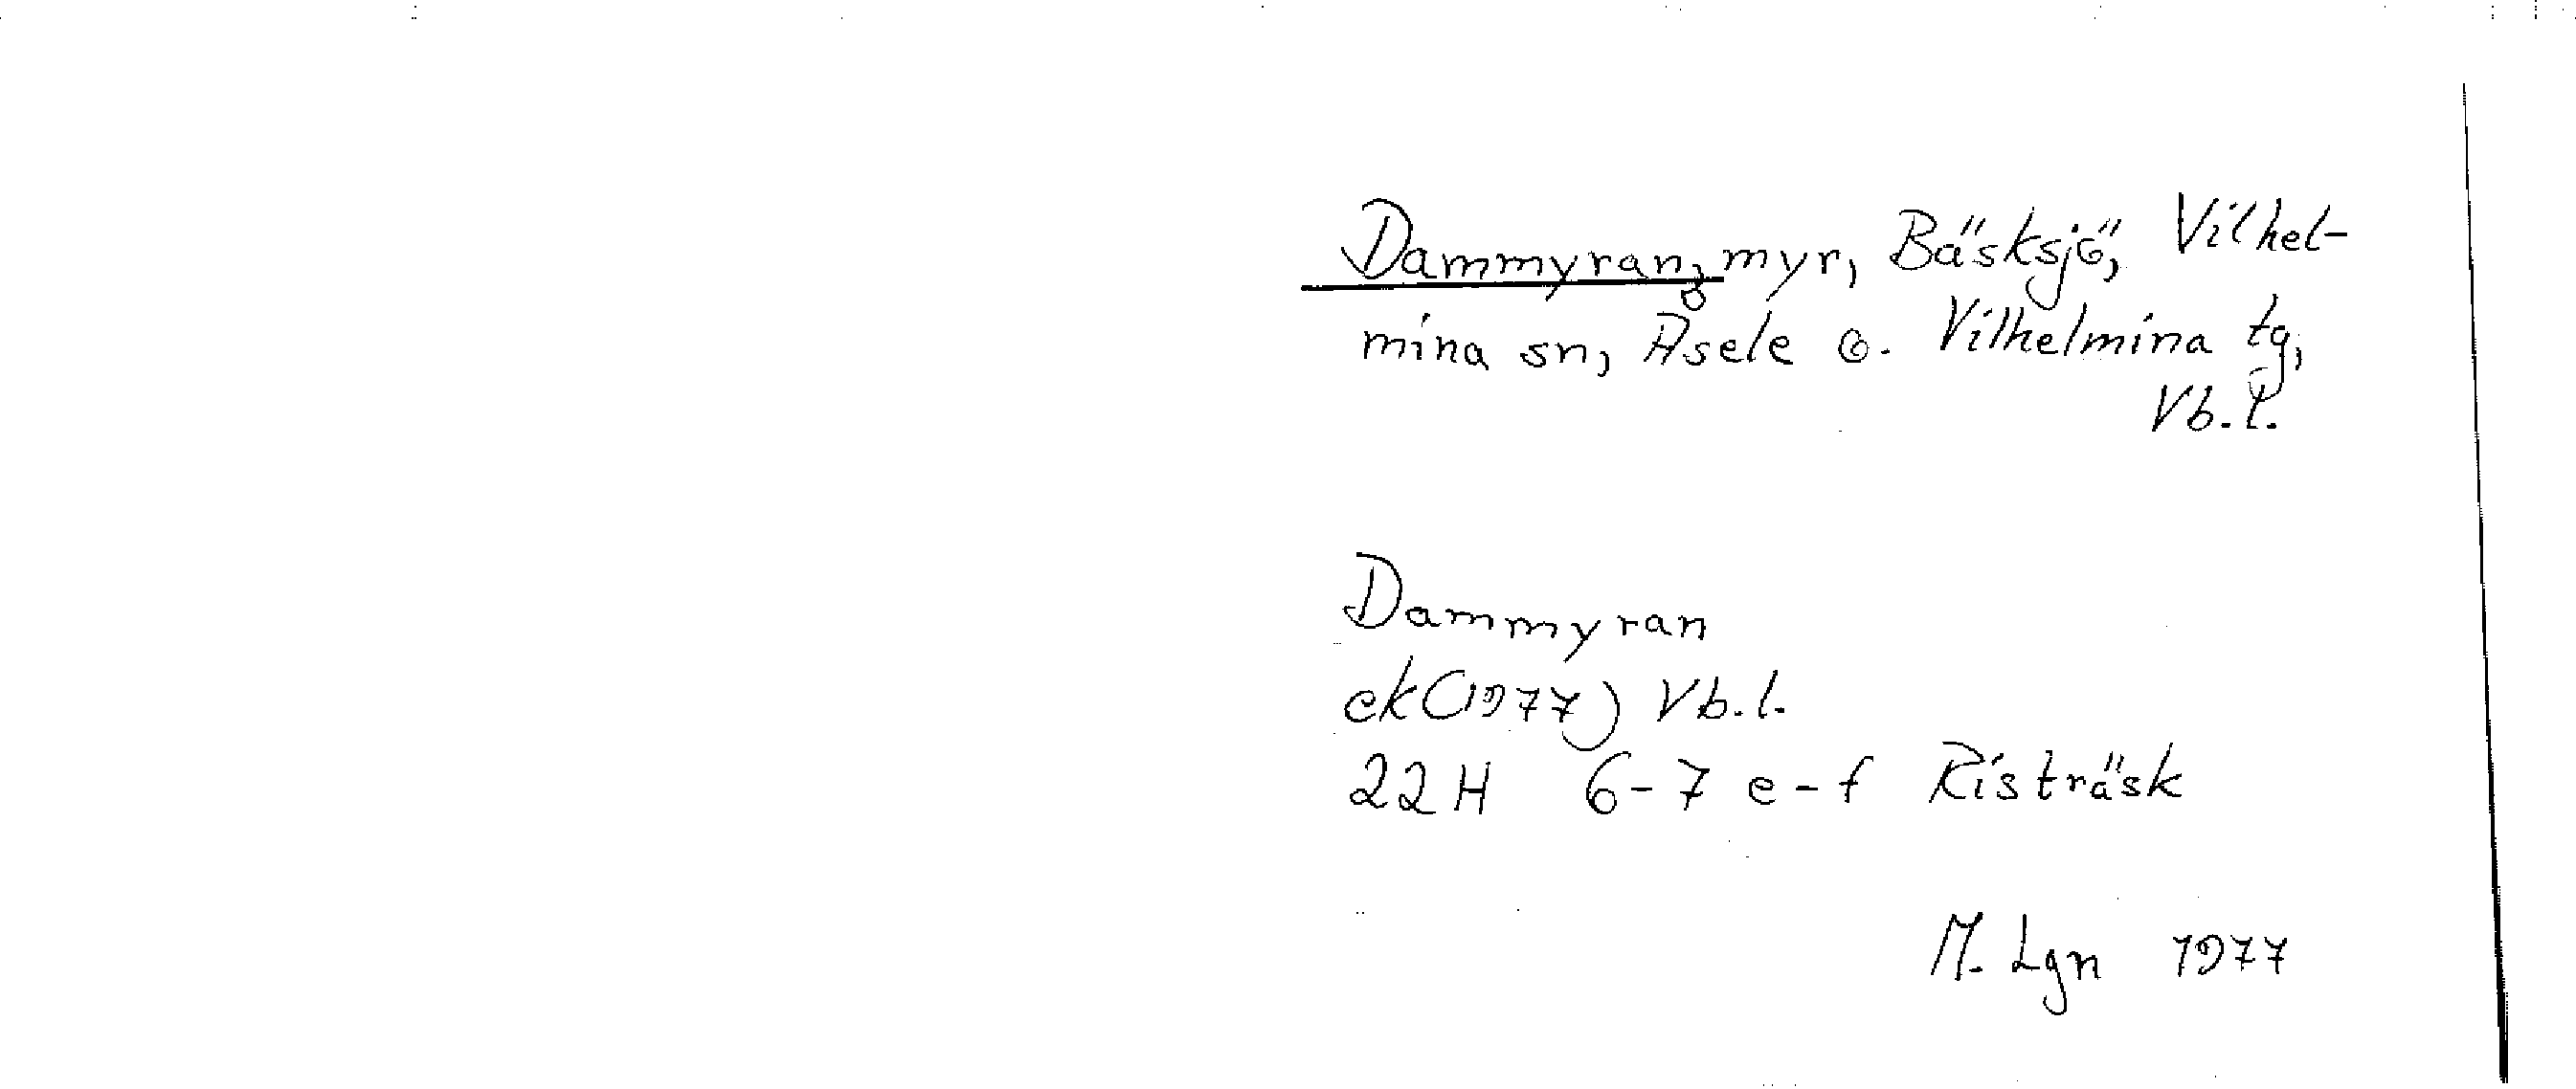 Dammyran, myr, Bäsksjö, Vilhel-
mina sn, Åsele o. Vilhelmina tg,
Vb.l.
Dammyran
ek(1977) Vb.l.
22H 6-7 e-f Risträsk
M. Lgn 1977